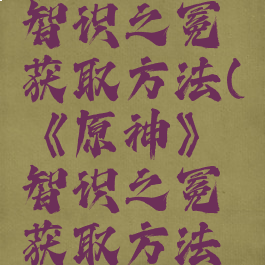 智识之冕
获取方法(
《原神》
智识之冕
获取方法